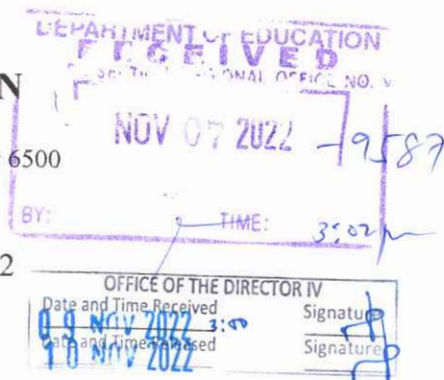 DEPARTMENT OF EDUCATION
RECEIVED
REGIONAL OFFICE NO. V
N
NOV 07 2022
-9587
6500
BY: TIME: 3:02 pm
2
OFFICE OF THE DIRECTOR IV
Date and Time Received Signature
09 NOV 2022 3:00
Date and Time Released Signature
10 NOV 2022